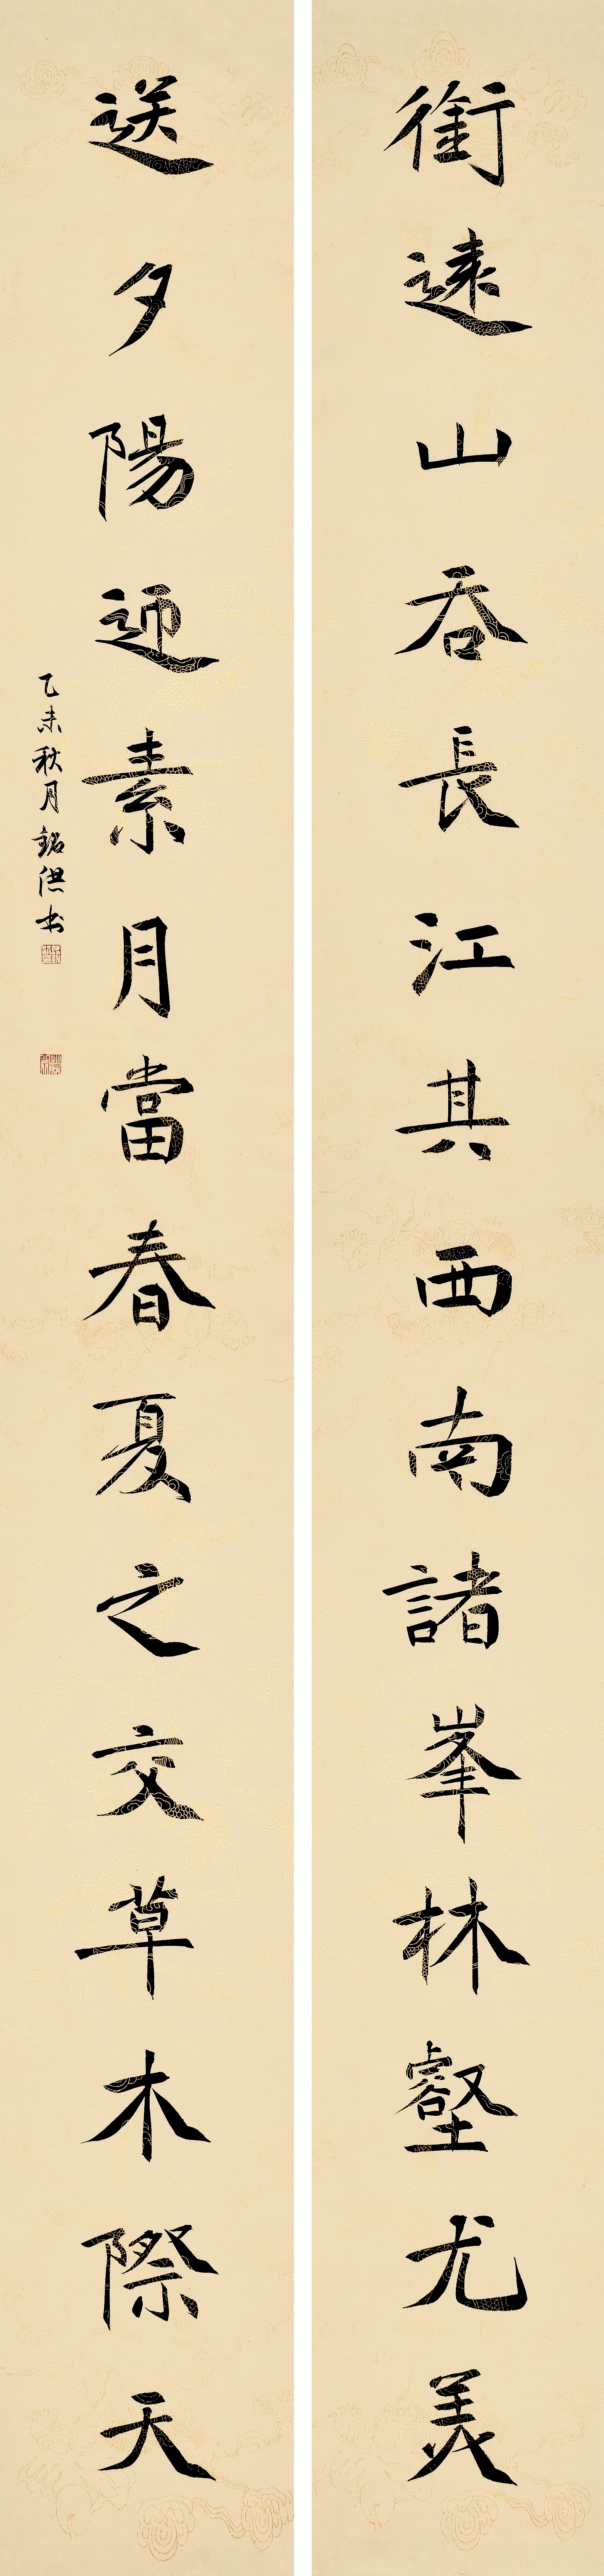 銜遠山吞長江其西南諸峯林壑尤美
送夕陽迎素月當春夏之交草木際天
乙未秋月銘供书